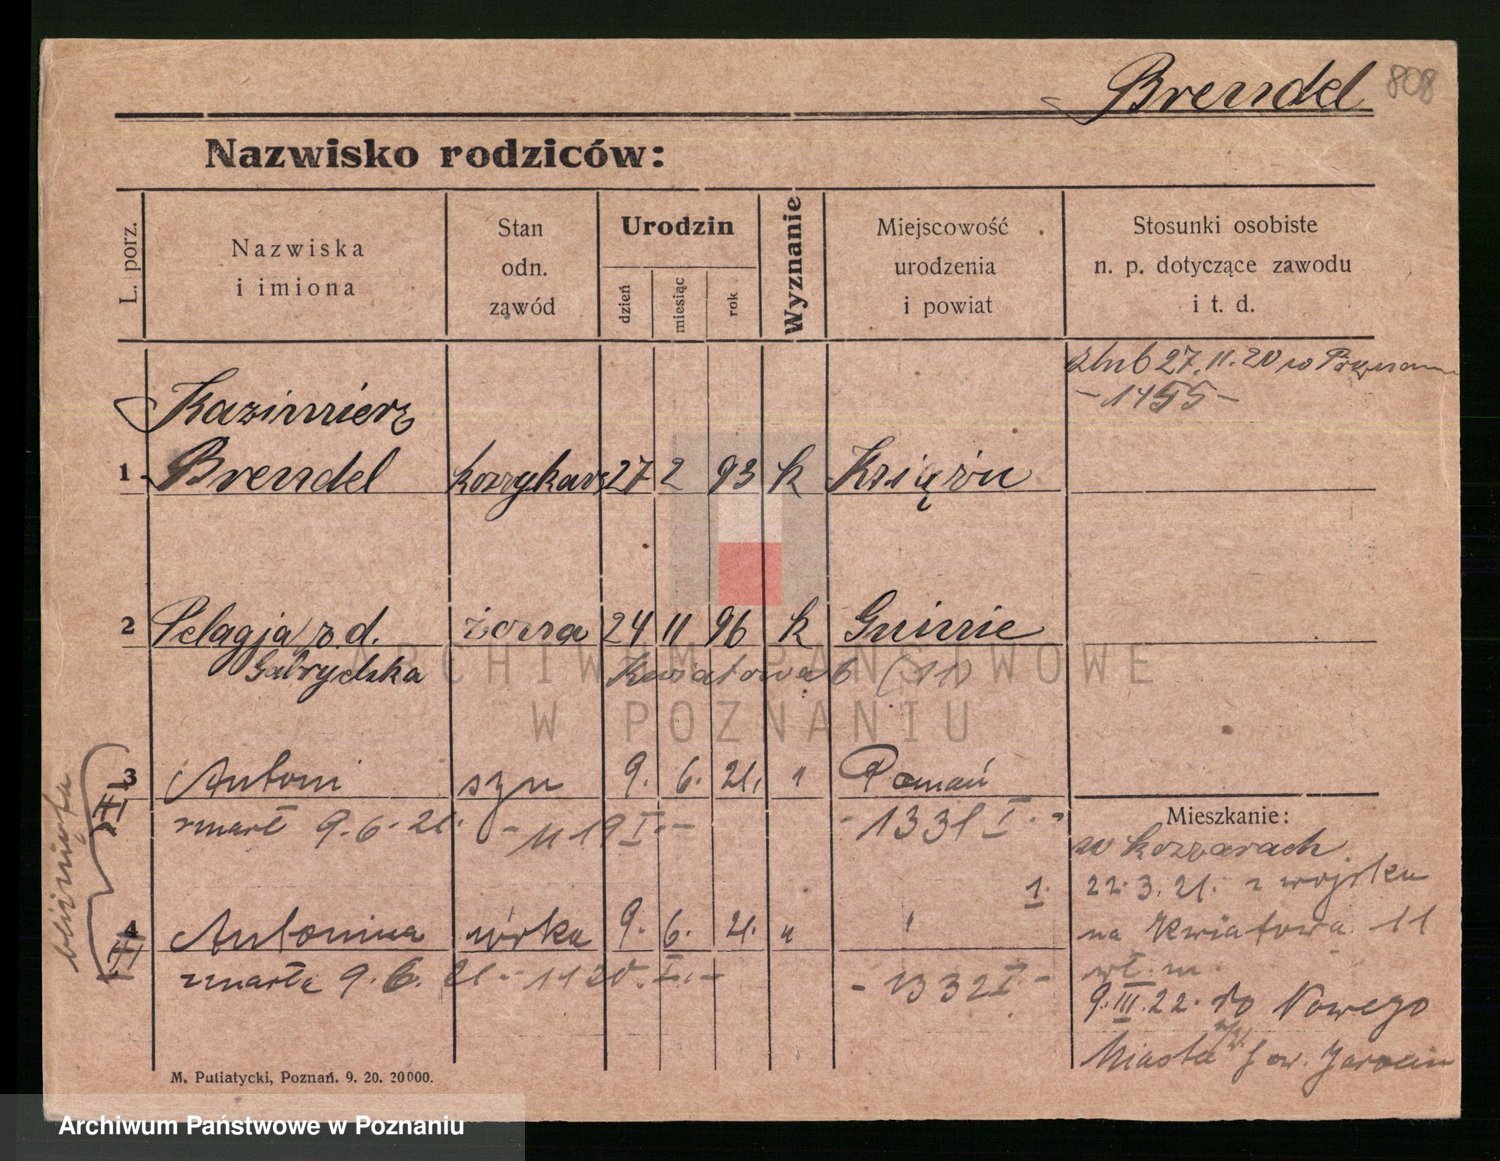 Brendel 808
Nazwisko rodziców:
L. porz.
Nazwiska
i imiona
Stan
odn.
zawód
Urodzin
dzień
miesiąc
rok
Wyznanie
Miejscowość
urodzenia
i powiat
Stosunki osobiste
n. p. dotyczące zawodu
i t. d.
ślub 27.11.20 w Poznaniu
-1455-
Kazimierz
1 Brendel 27 2 93 k Książu
2 Pelagja z d. żona 24 11 96 k
Gabryelska Kwiatowa 6 (11)
ARCHIWUM PAŃSTWOWE
W POZNANIU
bliźnięta
3 Antoni syn 9. 6. 21. " Poznań
zmarł 9.6.21. - 1119 I. - - 1331 I. -
Mieszkanie:
w koszarach
22.3.21. z wojska
1.
4 Antonina córka 9. 6. 21. " "
na Kwiatowa 11
zmarła 9.6.21. - 1120. I. - - 1332 I. -
wł. m.
9.III.22. do Nowego
Miasta pow. Jarocin
M. Putiatycki, Poznań. 9. 20. 20000.
Archiwum Państwowe w Poznaniu